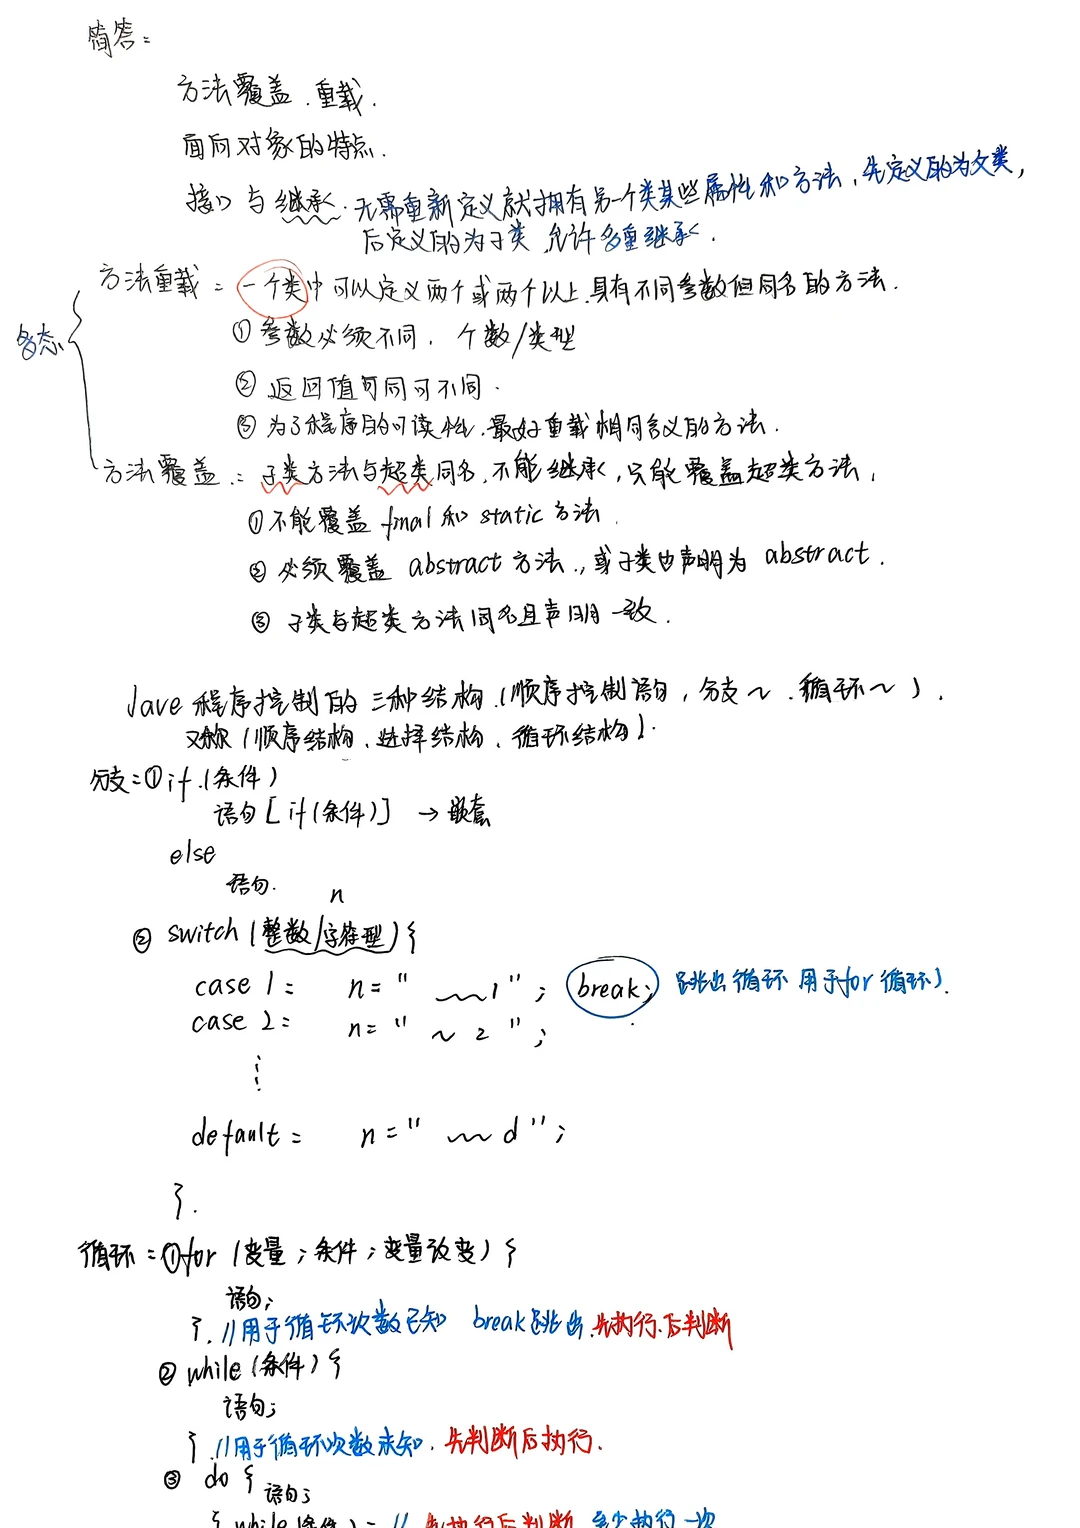 简答:
方法覆盖、重载.
面向对象的特点.
接口与继承. 无需重新定义就拥有另一个类某些属性和方法, 先定义的为父类,
后定义的为子类, 允许多重继承.
多态
方法重载: 一个类中可以定义两个或两个以上,具有不同参数但同名的方法.
① 参数必须不同, 个数/类型
② 返回值可同可不同.
③ 为了程序的可读性,最好重载相同含义的方法.
方法覆盖: 子类方法与超类同名,不能继承,只能覆盖超类方法,
①不能覆盖 final 和 static 方法.
② 必须覆盖 abstract 方法,或子类也声明为 abstract.
③ 子类与超类方法同名且声明一致.
Jave 程序控制的三种结构(顺序控制语句, 分支~、循环~).
又称(顺序结构、选择结构、循环结构).
分支:①if(条件)
语句[if(条件)] → 嵌套
else
语句.
n
② switch(整数/字符型){
case 1: n=" ~1"; break; 跳出循环 用于for循环)
case 2: n=" ~ 2 ";
⋮
default: n=" ~ d ";
}.
循环:①for (变量;条件;变量改变){
语句;
}. //用于循环次数已知 break跳出.先执行.后判断
② while(条件){
语句;
} //用于循环次数未知. 先判断后执行.
③ do { 语句;
} while(条件); // 先执行后判断 至少执行一次